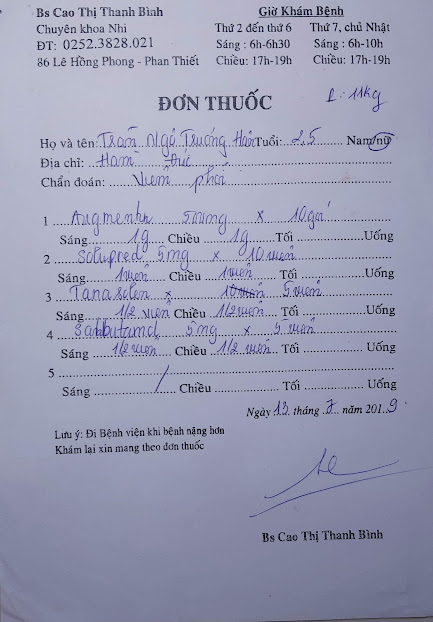 Bs Cao Thị Thanh Bình
Chuyên khoa Nhi
ĐT: 0252.3828.021
86 Lê Hồng Phong - Phan Thiết
Giờ Khám Bệnh
Thứ 2 đến thứ 6 Thứ 7, chủ Nhật
Sáng : 6h-6h30 Sáng : 6h-10h
Chiều: 17h-19h Chiều: 17h-19h
ĐƠN THUỐC
11kg
Họ và tên: Trần Ngô Trường Hân Tuổi: 2,5 Nam/nữ
Địa chỉ: Hàm Đức
Chẩn đoán: Viêm phổi
1 Augmentin 500mg x 10 gói
Sáng 1g Chiều 1g Tối Uống
2 Solupred 5mg x 10 viên
Sáng 1 viên Chiều 1 viên Tối Uống
3 Tanaselen x 5 viên
Sáng 1/2 viên Chiều 1/2 viên Tối Uống
4 Salbutamol 5mg x 5 viên
Sáng 1/2 viên Chiều 1/2 viên Tối Uống
5
Sáng Chiều Tối Uống
Ngày 13 tháng 7 năm 2019
Lưu ý: Đi Bệnh viện khi bệnh nặng hơn
Khám lại xin mang theo đơn thuốc
Bs Cao Thị Thanh Bình